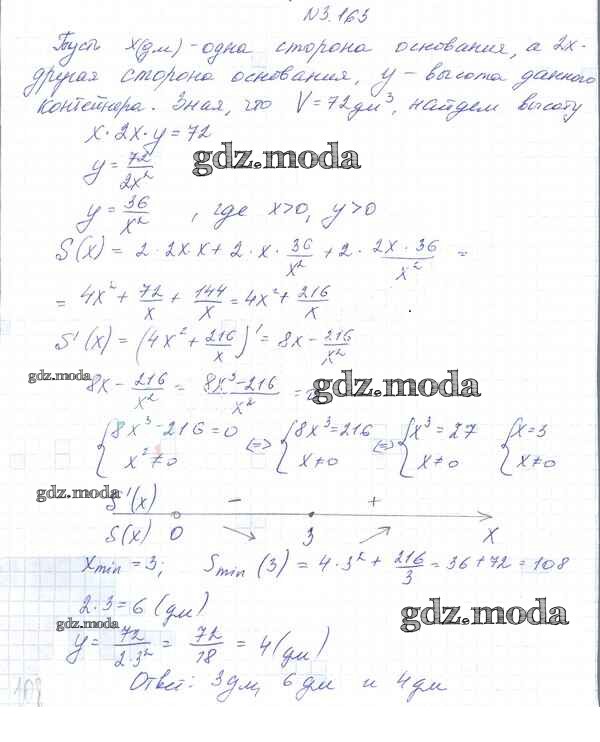 N3.163
Пусть x(дм) - одна сторона основания, а 2x-
другая сторона основания, y - высота данного
контейнера. Зная, что V = 72дм³, найдем высоту
x · 2x · y = 72
y = 72/2x²
gdz.moda
y = 36/x² , где x>0, y>0
S(x) = 2 · 2x · x + 2 · x · 36/x² + 2 · 2x · 36/x² =
= 4x² + 72/x + 144/x = 4x² + 216/x
S'(x) = (4x² + 216/x)' = 8x - 216/x²
gdz.moda
8x - 216/x² = 8x³-216/x² =
gdz.moda
{8x³-216=0 {8x³=216 {x³=27 {x=3
{x²≠0 <=> {x≠0 <=> {x≠0 {x≠0
gdz.moda
S'(x) - +
S(x) 0 3 x
xmin = 3; Smin (3) = 4 · 3² + 216/3 = 36 + 72 = 108
2 · 3 = 6 (дм)
gdz.moda
gdz.moda
y = 72/2·3² = 72/18 = 4 (дм)
Ответ: 3дм, 6дм и 4дм